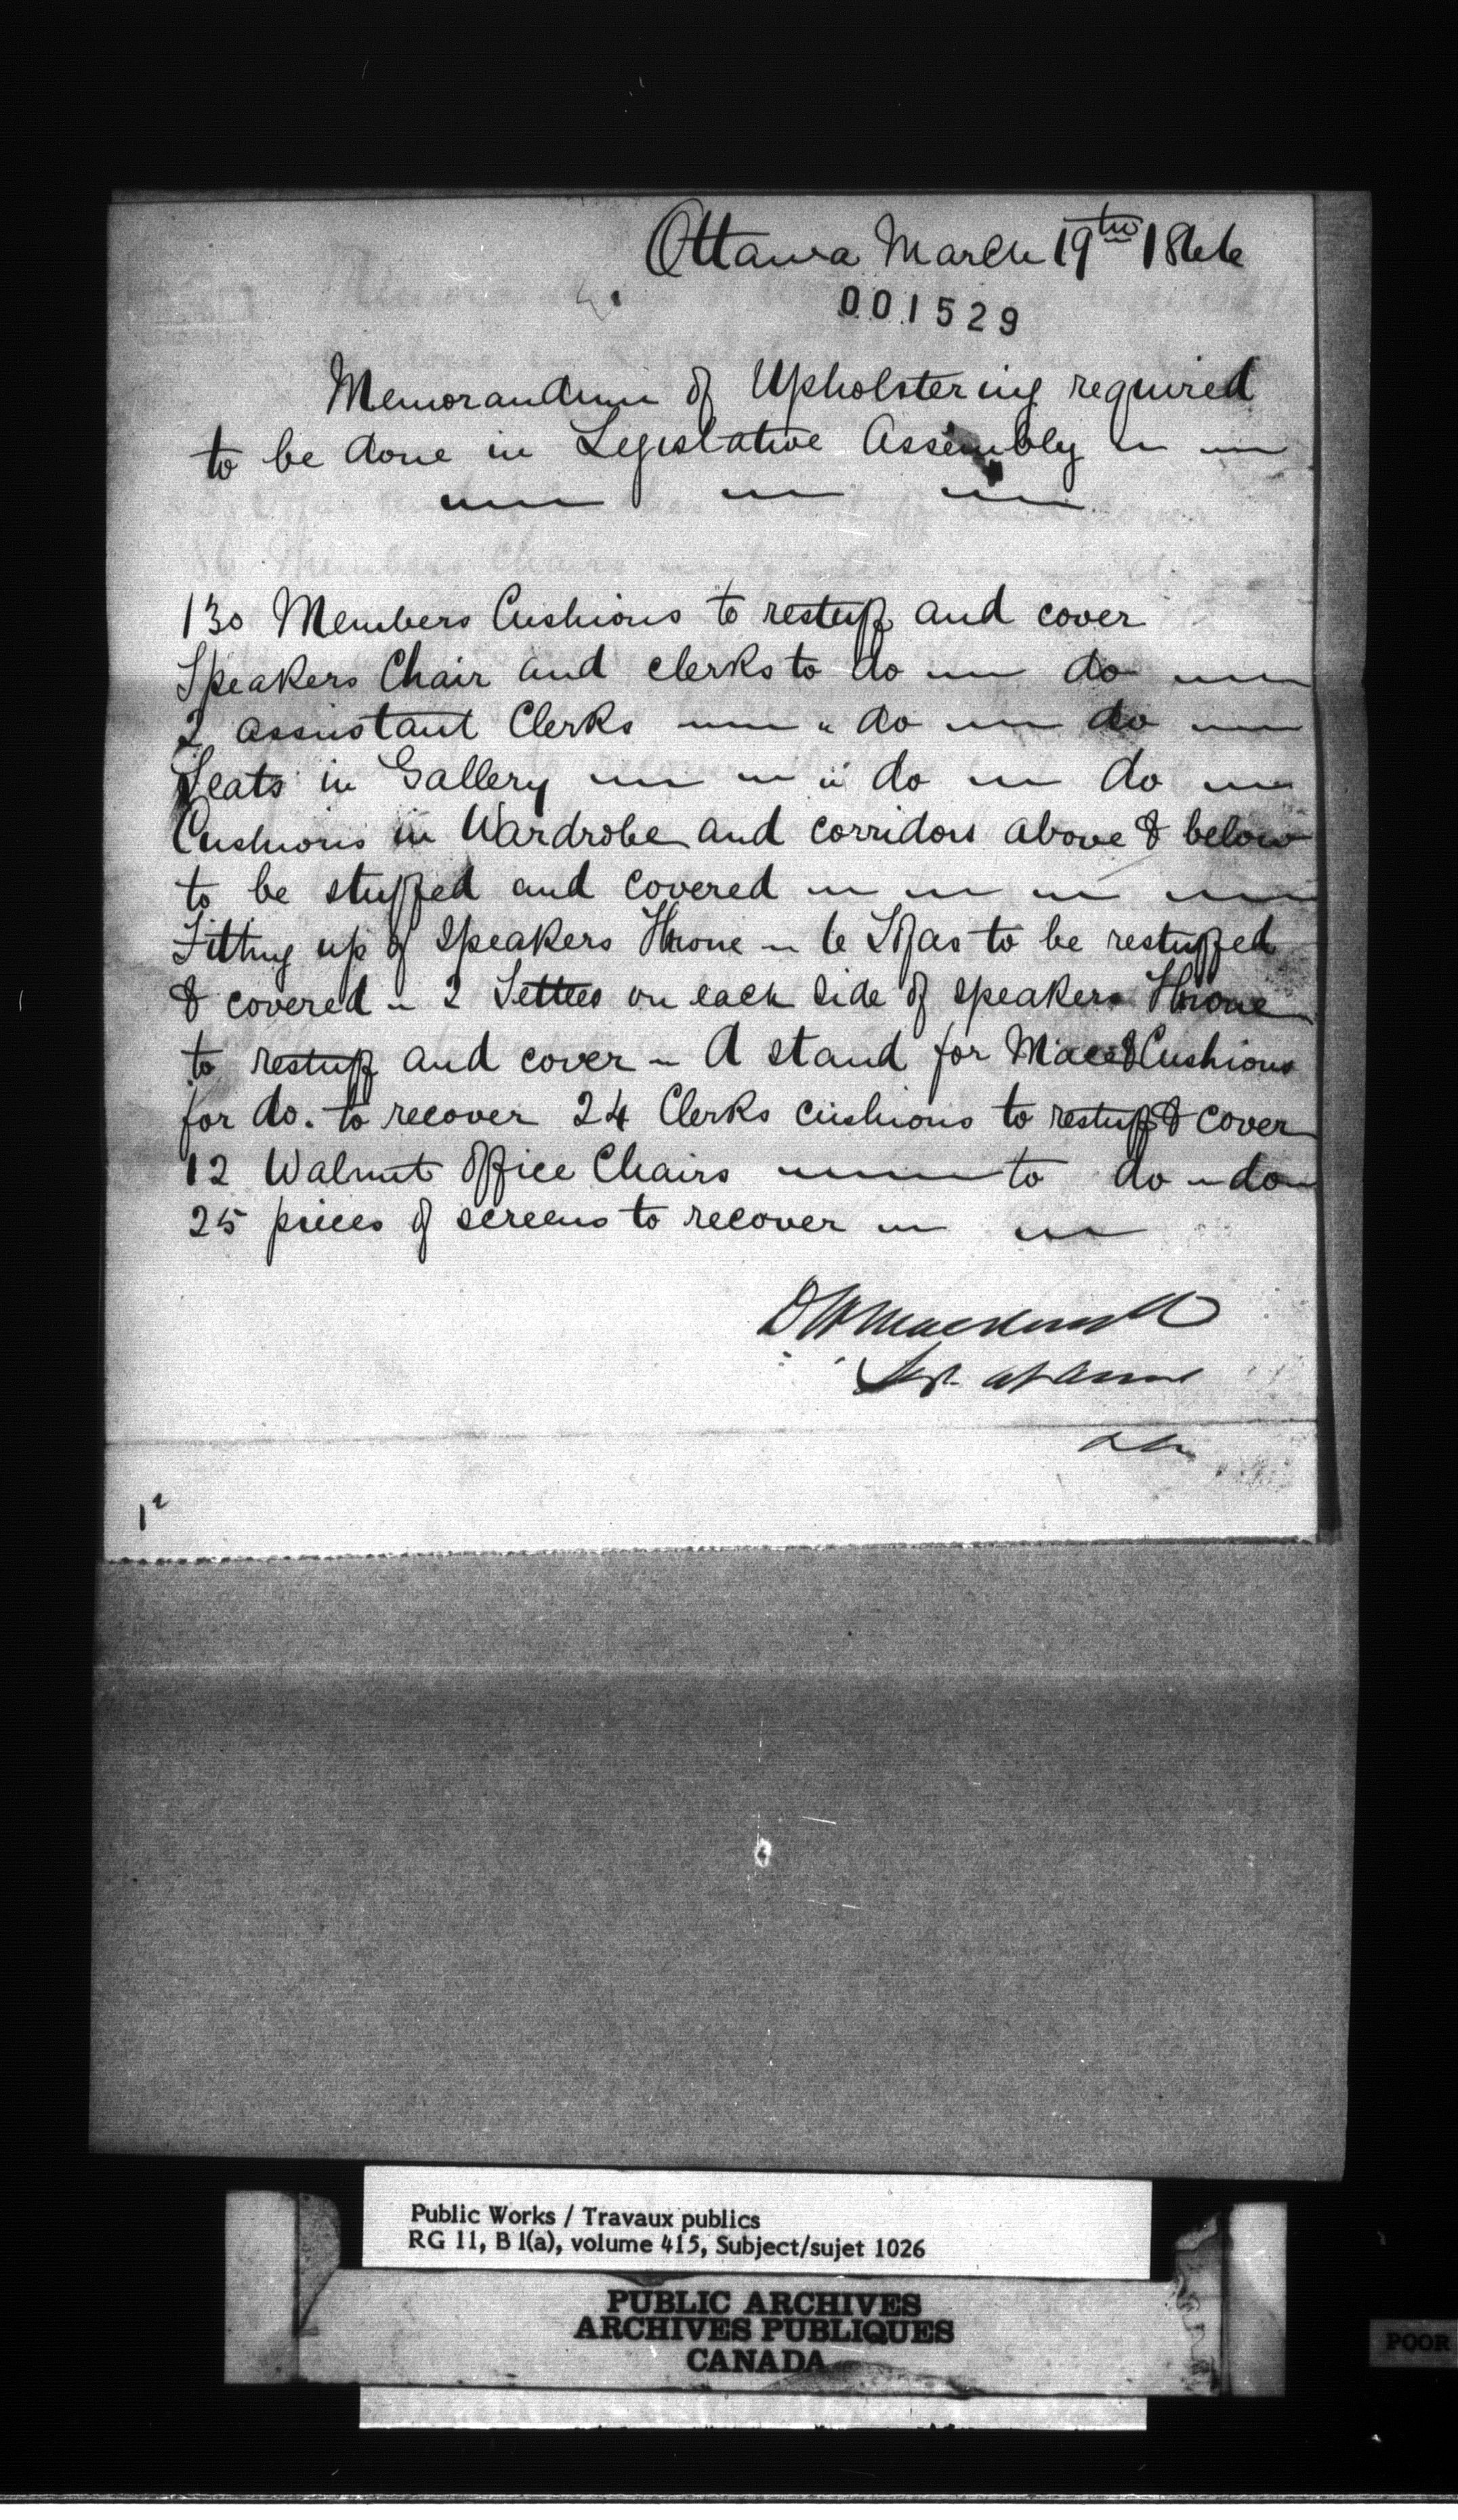 Ottawa March 19th 1866
001529
Memorandum of Upholstering required
to be done in Legislative Assembly
130 Members Cushions to restuff and cover
Speakers Chair and clerks to do do
2 assistant Clerks " do do
Seats in Gallery " do do
Cushions in Wardrobe and corridors above & below
to be stuffed and covered
Fitting up of speakers Throne 6 Sofas to be restuffed
& covered 2 Settees on each side of speakers Throne
to restuff and cover A stand for Mace & Cushions
for do. to recover 24 Clerks cushions to restuff & cover
12 Walnut office Chairs to do do
25 pieces of screens to recover
Public Works / Travaux publics
RG 11, B 1(a), volume 415, Subject/sujet 1026
PUBLIC ARCHIVES
ARCHIVES PUBLIQUES
CANADA
POOR